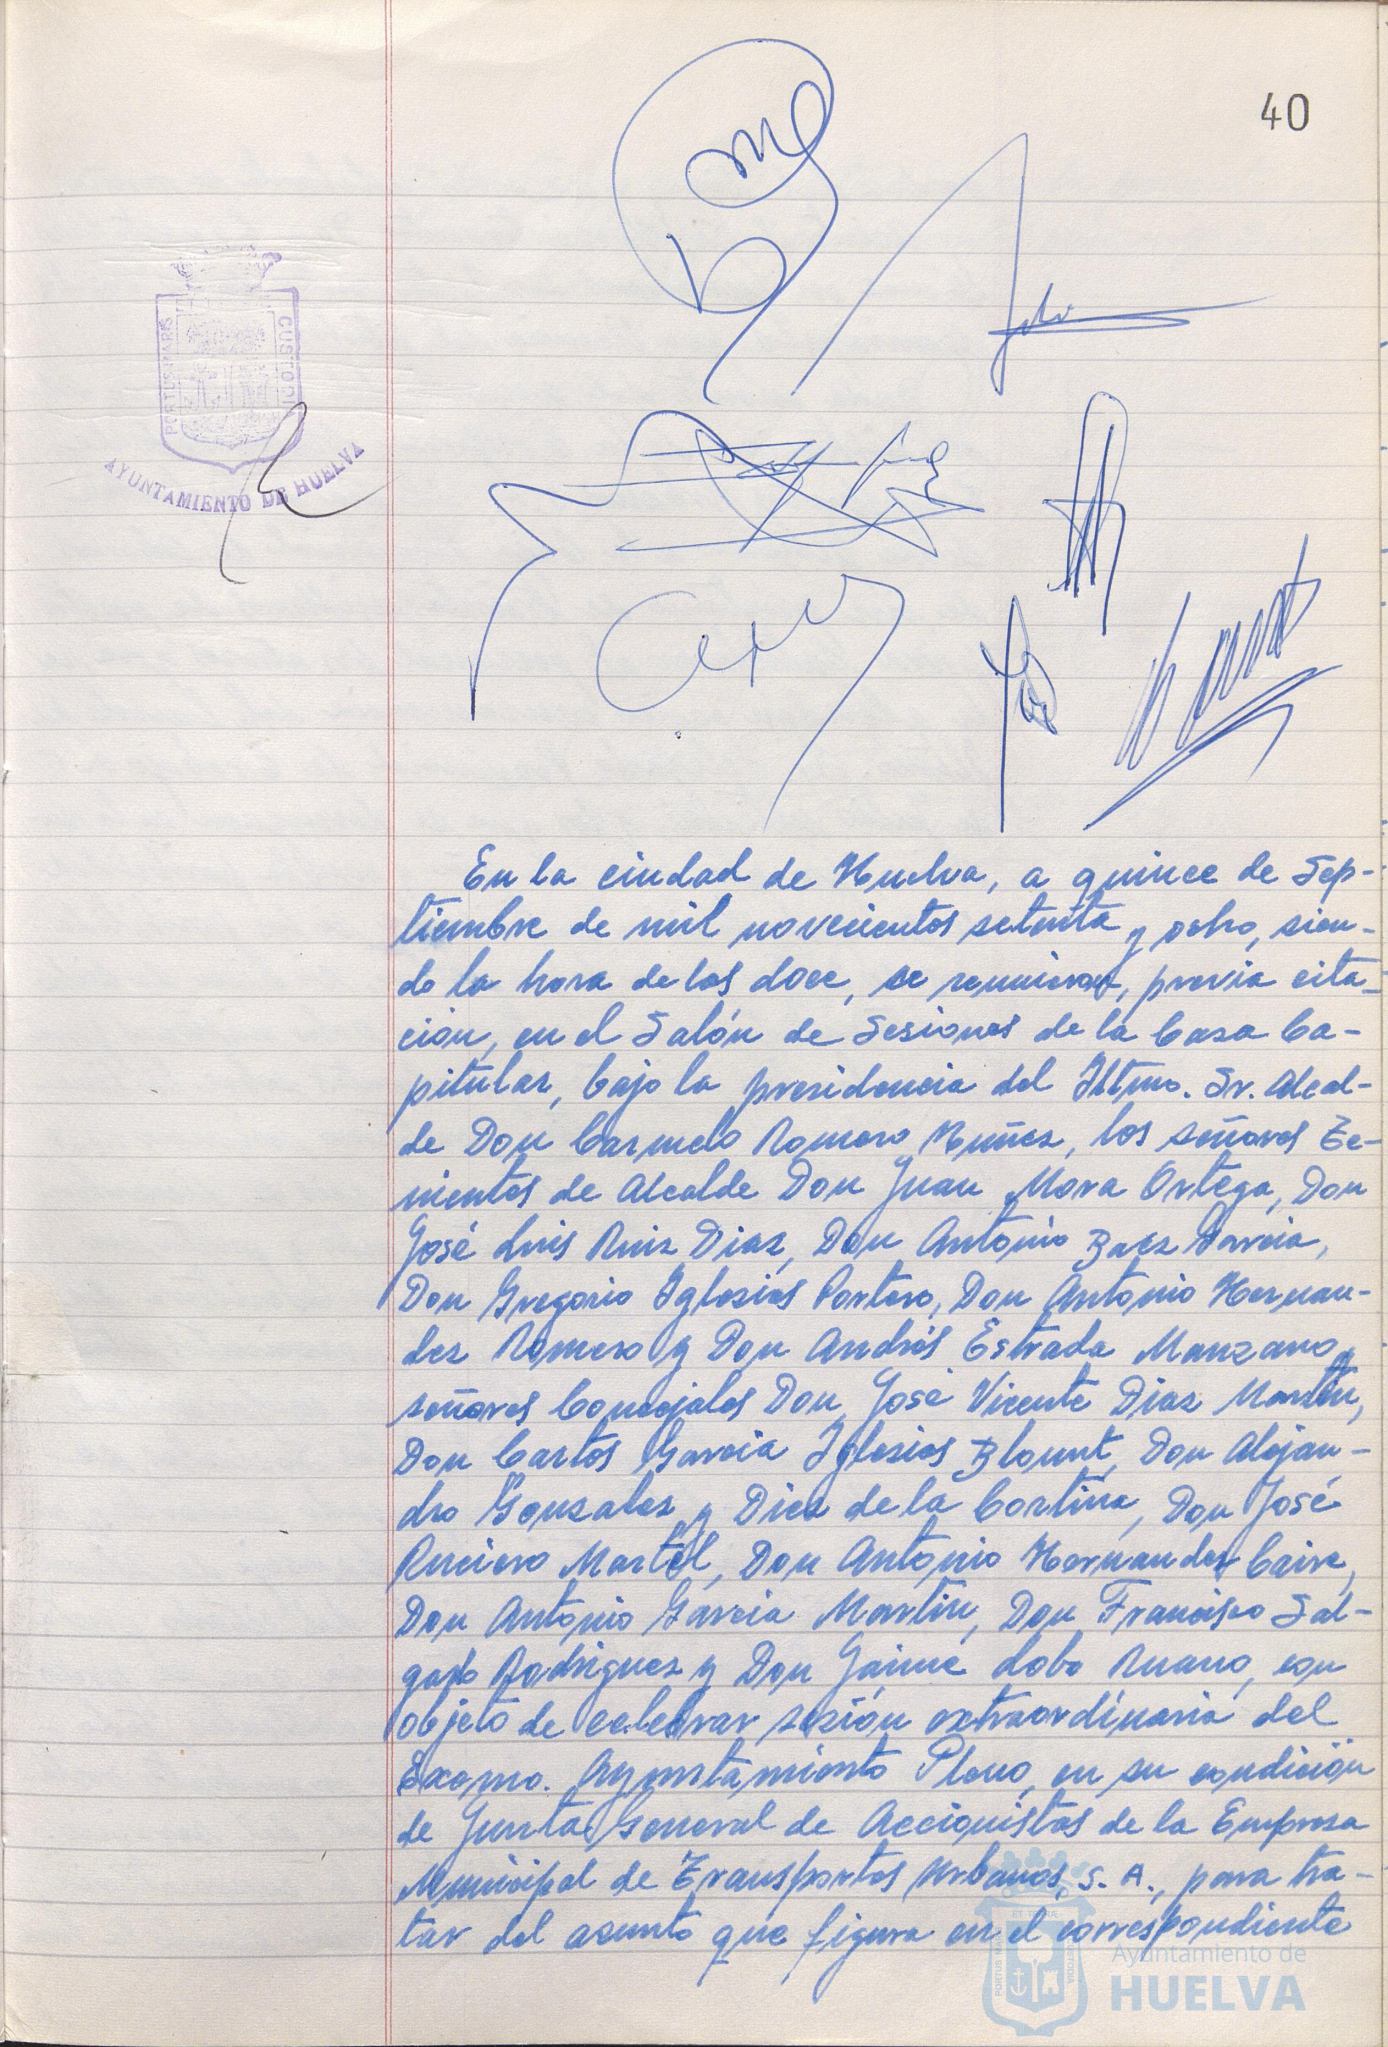 40
PORTUS MARIS
CUSTODI
AYUNTAMIENTO DE HUELVA
En la ciudad de Huelva, a quince de Sep-
tiembre de mil novecientos setenta y ocho, sien-
do la hora de las doce, se reunieron, previa cita-
ción, en el Salón de Sesiones de la Casa Ca-
pitular, bajo la presidencia del Iltmo. Sr. Alcal-
de Don Carmelo Romero Muñez, los señores Te-
nientes de Alcalde Don Juan Mora Ortega, Don
José Luis Ruiz Diaz, Don Antonio Baez Garcia,
Don Gregorio Iglesias Portero, Don Antonio Hernan-
dez Romero y Don Andrés Estrada Manzano y
señores Concejales Don José Vicente Diaz Martin,
Don Carlos Garcia Iglesias Blount, Don Alejan-
dro Gonzalez y Diez de la Cortina, Don José
Ruciero Martel, Don Antonio Hernandez Caire,
Don Antonio Garcia Martin, Don Francisco Sal-
gado Rodriguez y Don Jaime Lobo Ruano, con
objeto de celebrar sesión extraordinaria del
Excmo. Ayuntamiento Pleno, en su condición
de Junta General de Accionistas de la Empresa
Municipal de Transportes Urbanos, S. A., para tra-
tar del asunto que figura en el correspondiente
Ayuntamiento de
HUELVA